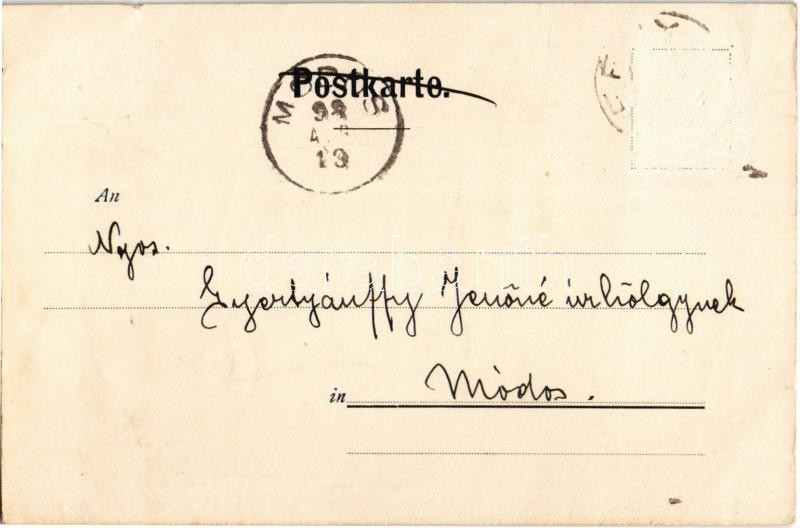 Postkarte.
MÓDOS
98
13
An
Ngos.
Gyertyánffy Jenőné úrhölgynek
in Módos.